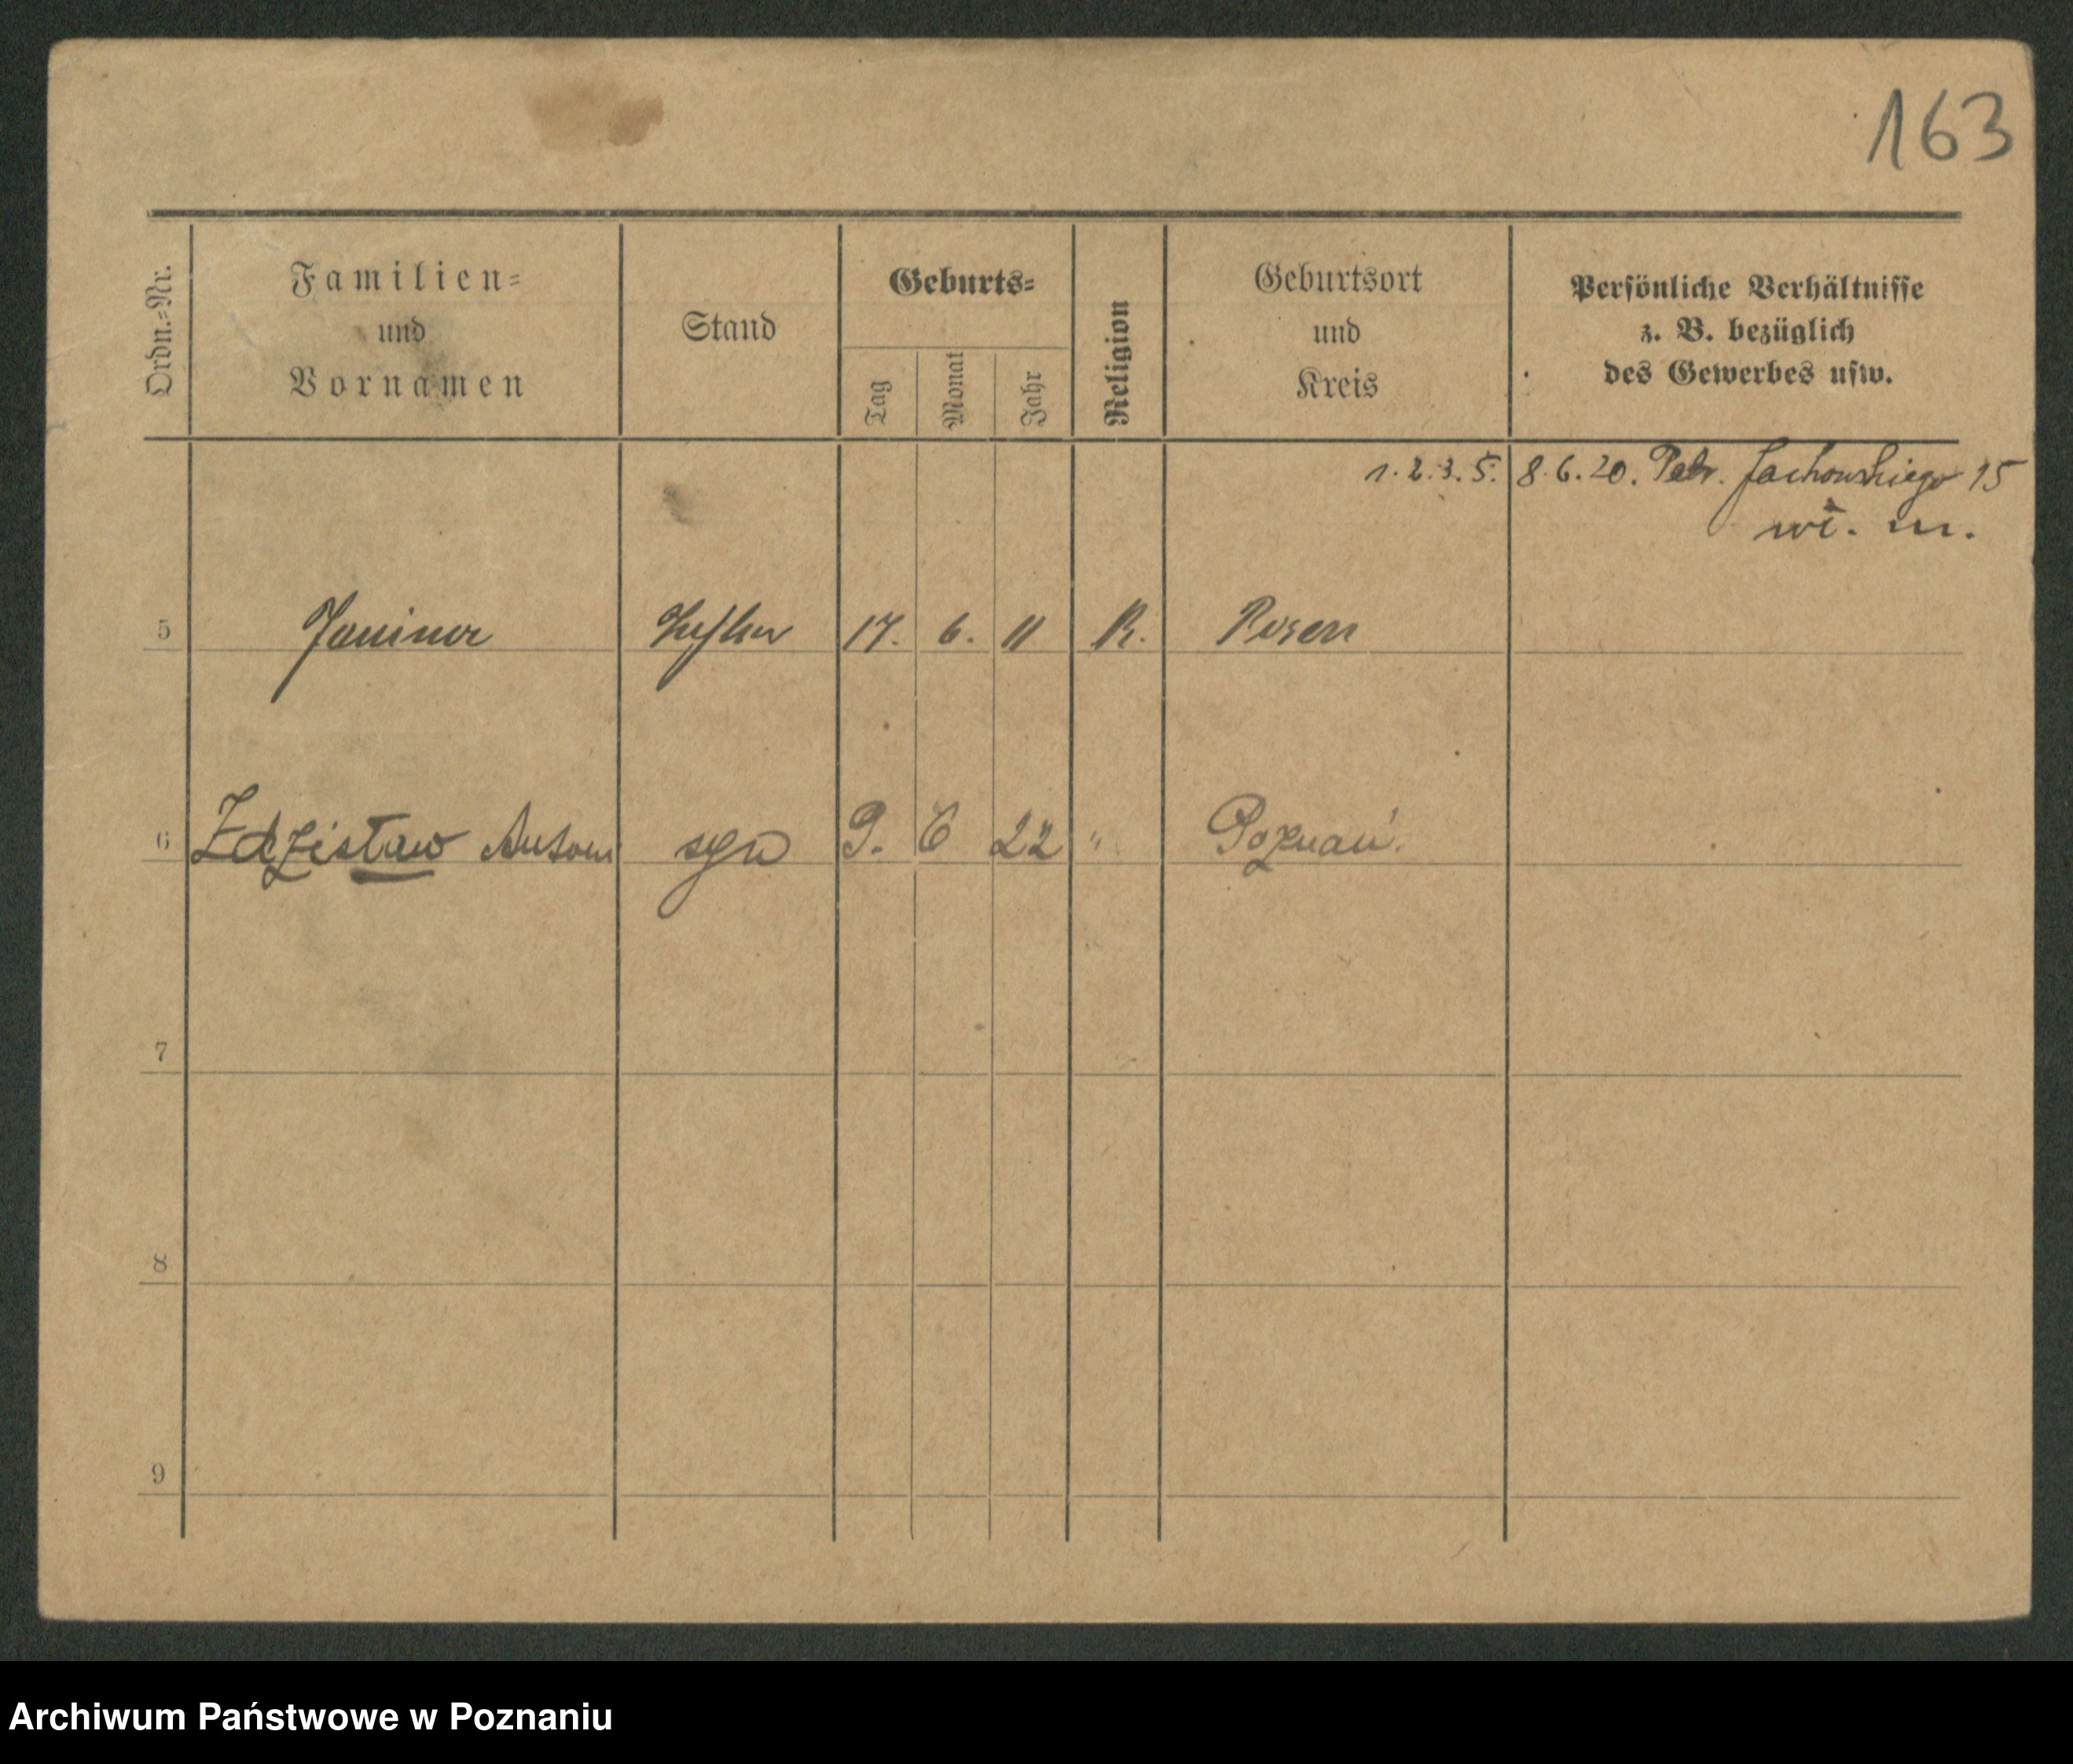 163
Ordn.-Nr.
Familien-
und
Vornamen
Stand
Geburts-
Tag
Monat
Jahr
Religion
Geburtsort
und
Kreis
Persönliche Verhältnisse
z. B. bezüglich
des Gewerbes usw.
1. 2. 3. 5. 8. 6. 20. Patr. Jackowskiego 15
w. m.
5 Janina Tochter 17. 6. 11 R. Posen
6 Zdzisław Antoni syn 9. 6 22 " Poznań.
7
8
9
Archiwum Państwowe w Poznaniu